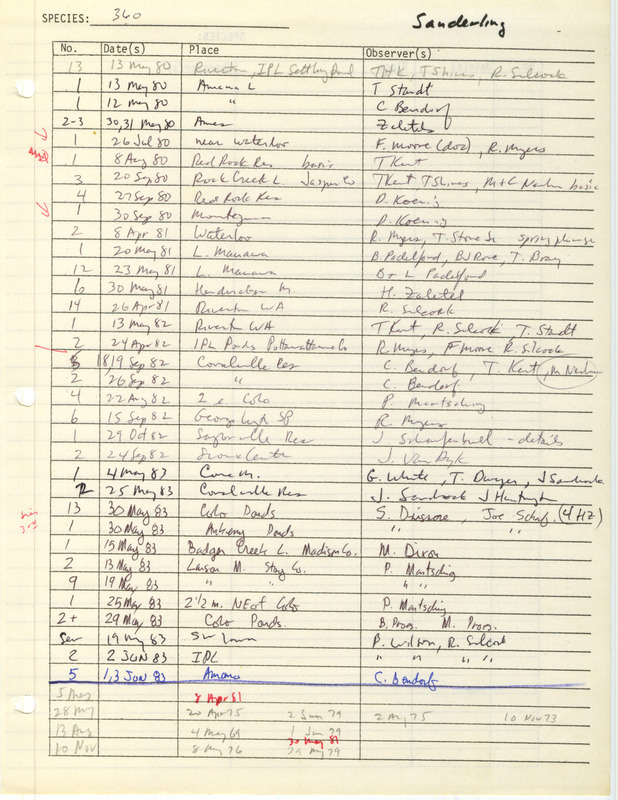 SPECIES: 360 Sanderling
No. Date(s) Place Observer(s)
13 13 May 80 Riverton, IPL Settling Pond THK, T Shires, R. Silcock
1 13 May 80 Amana L T Staudt
1 12 May 80 " C Bendorf
2-3 30,31 May 80 Ames Zaletel
1 26 Jul 80 near Waterloo F. Moore (doc), R. Myers
1 8 Aug 80 Red Rock Res basic T Kent
3 20 Sep 80 Rock Creek L. Jasper Co T Kent T Shires, M+C Newlon basic
4 27 Sep 80 Red Rock Res D. Koenig
1 30 Sep 80 Montezuma D. Koenig
2 8 Apr 81 Waterloo R. Myers, T. Stone Jr spring plumage
1 20 May 81 L. Manawa B. Padelford, BJ Rose, T. Bray
12 23 May 81 L. Manawa B + L Padelford
6 30 May 81 Hendrickson M. H. Zaletel
14 26 Apr 81 Riverton WA R. Silcock
1 13 May 82 Riverton WA T Kent, R. Silcock, T. Staudt
2 24 Apr 82 IPL Ponds Pottawattamie Co R. Myers, F Moore R. Silcock
5 18,19 Sep 82 Coralville Res C. Bendorf, T. Kent, M. Newlon
2 26 Sep 82 " C. Bendorf
4 22 Aug 82 2 e. Colo P. Martsching
6 15 Sep 82 George Wyth SP R. Myers
1 29 Oct 82 Saylorville Res J Schaufenbuel - details
2 24 Sep 82 Sioux Center J. Van Dyk
1 4 May 83 Cone M. G. White, T. Dwyer, J Sandrock
2 25 May 83 Coralville Res J. Sandrock J Huntington
13 30 May 83 Colo Ponds S. Dinsmore, Joe Schuf. (4 HZ)
1 30 May 83 Ankeny Ponds " "
1 15 May 83 Badger Creek L. Madison Co. M. Dixon
2 13 May 83 Larson M. Story Co. P. Martsching
9 19 May 83 " " " "
1 25 May 83 2 1/2 m. NE of Colo P. Martsching
2+ 29 May 83 Colo Ponds. B. Proes. M. Proes.
Sev 19 May 83 SW Iowa P. Wilson, R. Silcock
2 2 JUN 83 IPL " " " "
5 1,3 JUN 83 Amana C. Bendorf
8 Apr 81
28 May 20 Apr 75 2 Jun 79 2 Aug 75 10 Nov 73
13 Aug 4 May 69 1 Jun 79
30 May 81
10 Nov 8 May 76 29 May 79